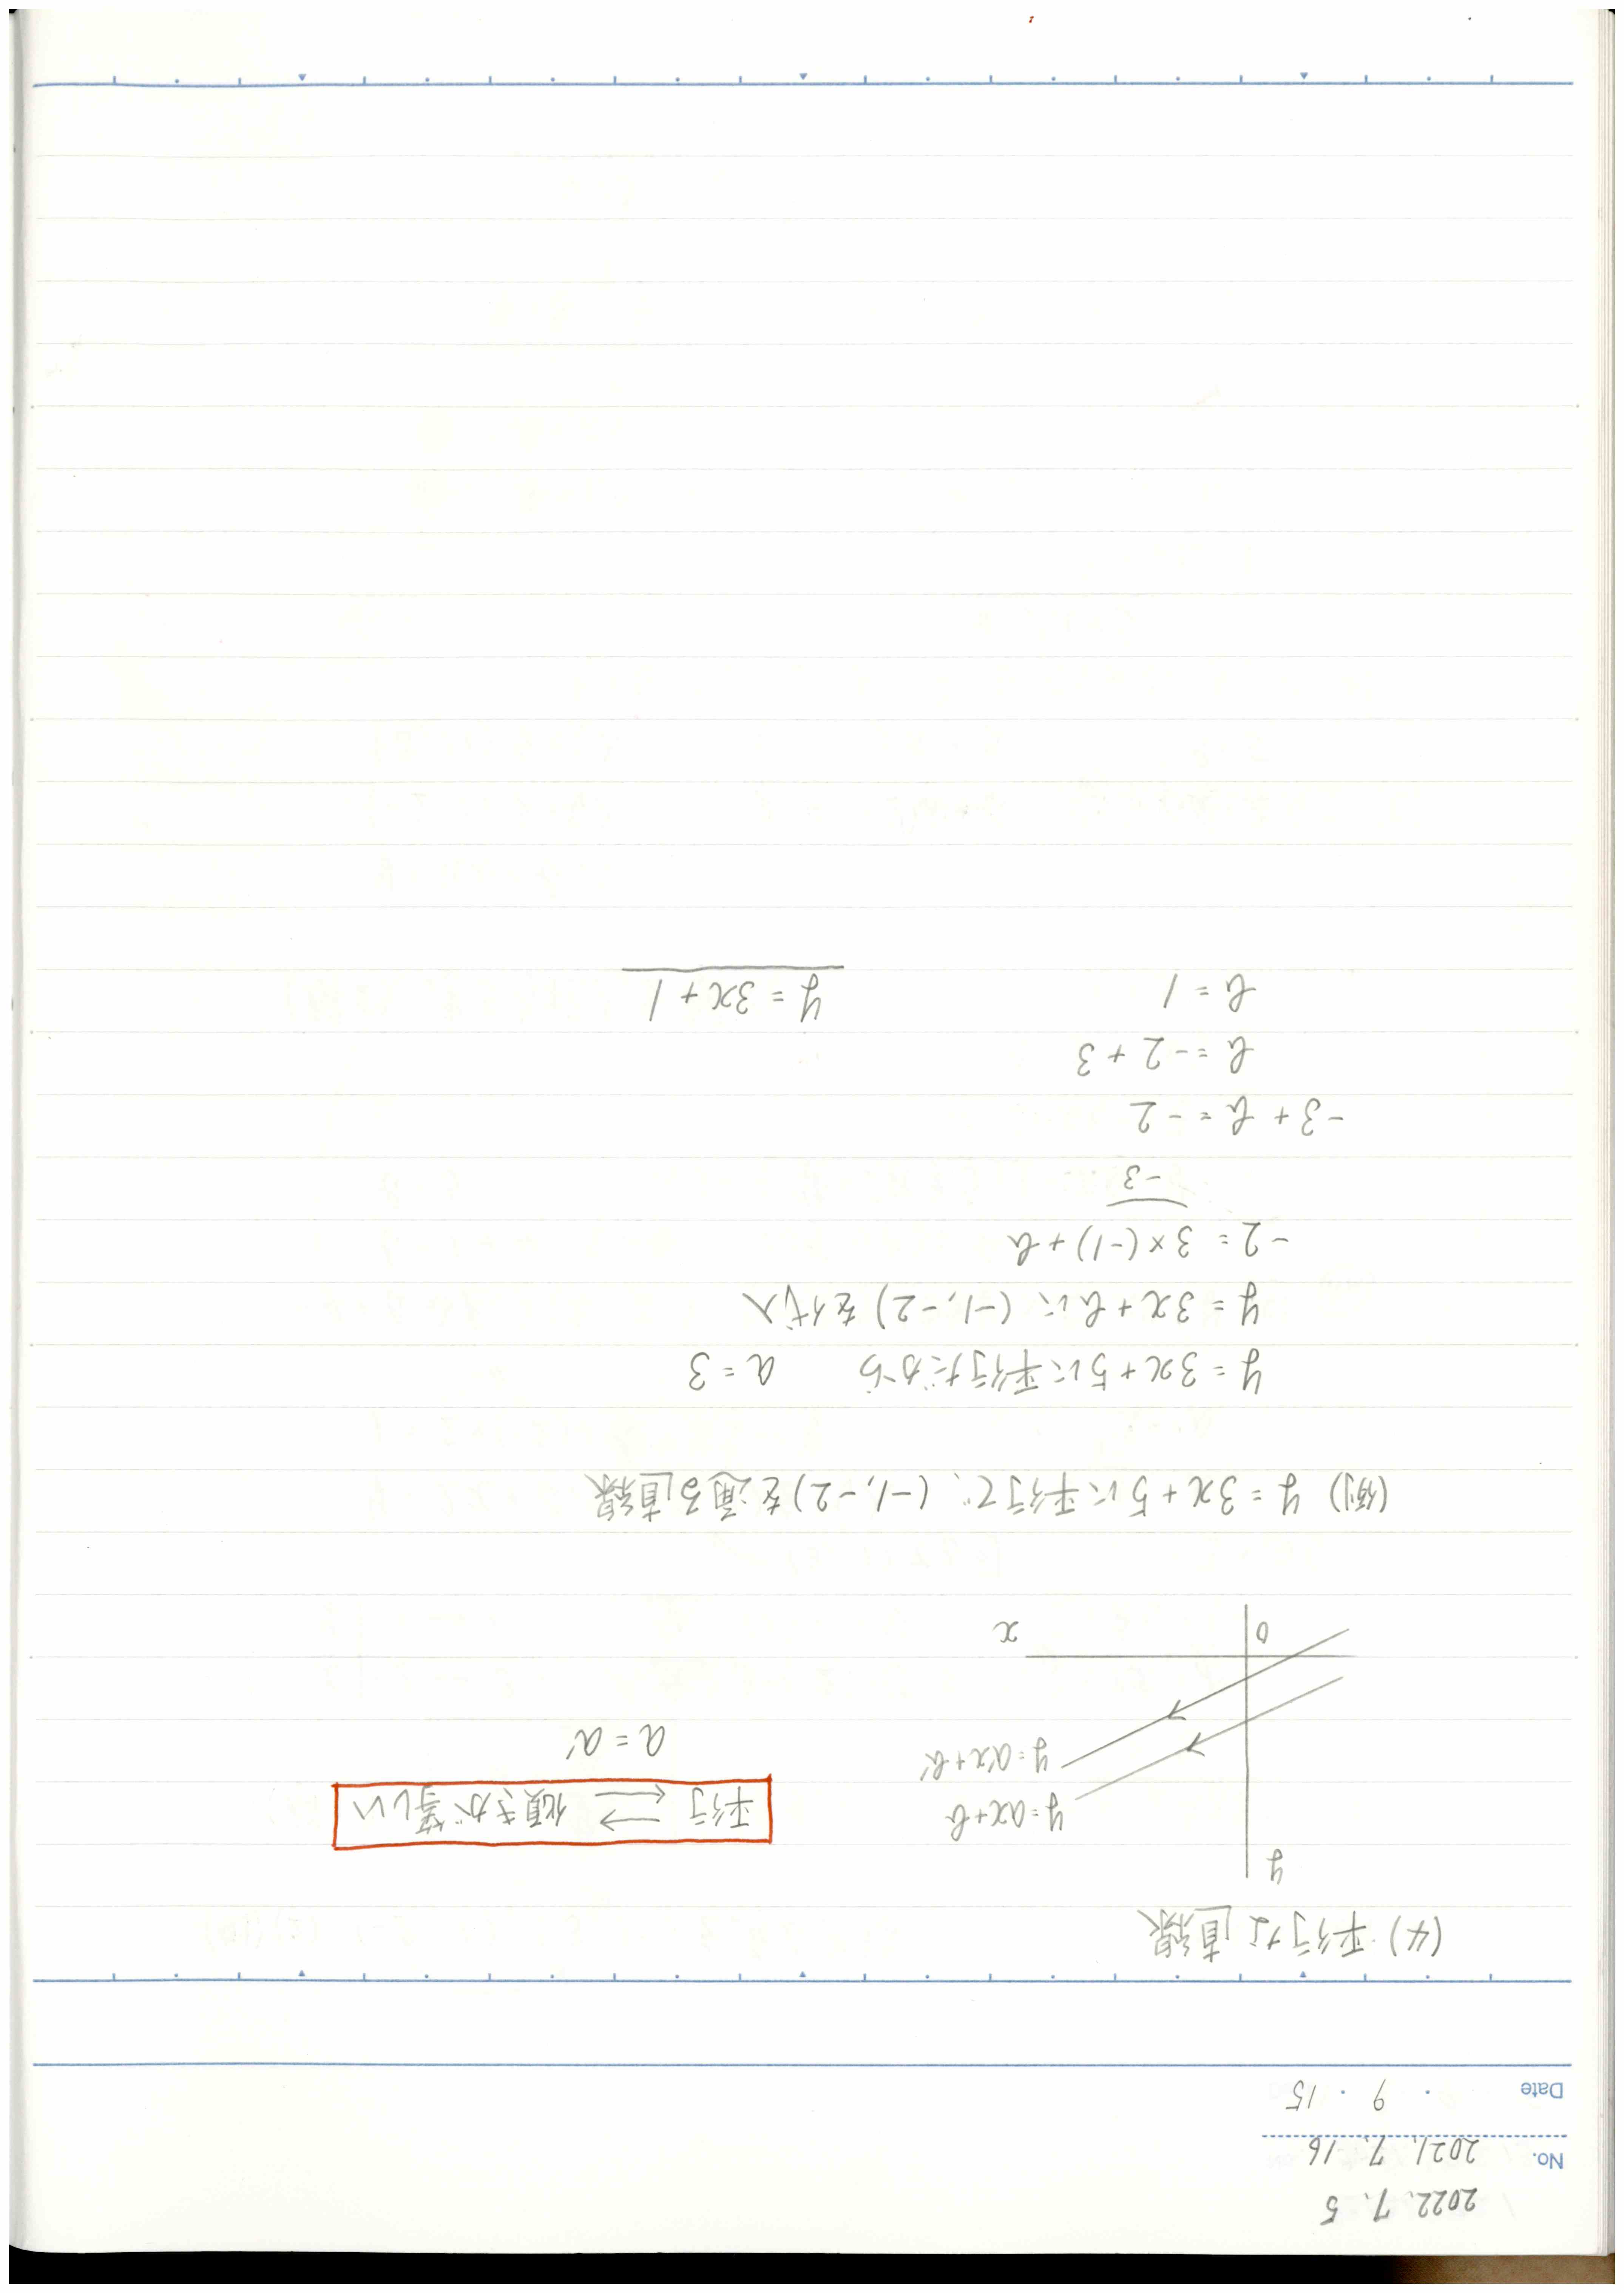 2022. 7. 5
No. 2021. 7. 16
Date . 9 . 15
(4) 平行な直線
y
y=ax+b
y=a'x+b'
0
x
平行 ⇄ 傾きが等しい
a = a'
(例) y = 3x + 5 に平行で、(-1, -2) を通る直線
y = 3x + 5 に平行だから a = 3
y = 3x + b に (-1, -2) を代入
-2 = 3 × (-1) + b
-3
-3 + b = -2
b = -2 + 3
b = 1
y = 3x + 1